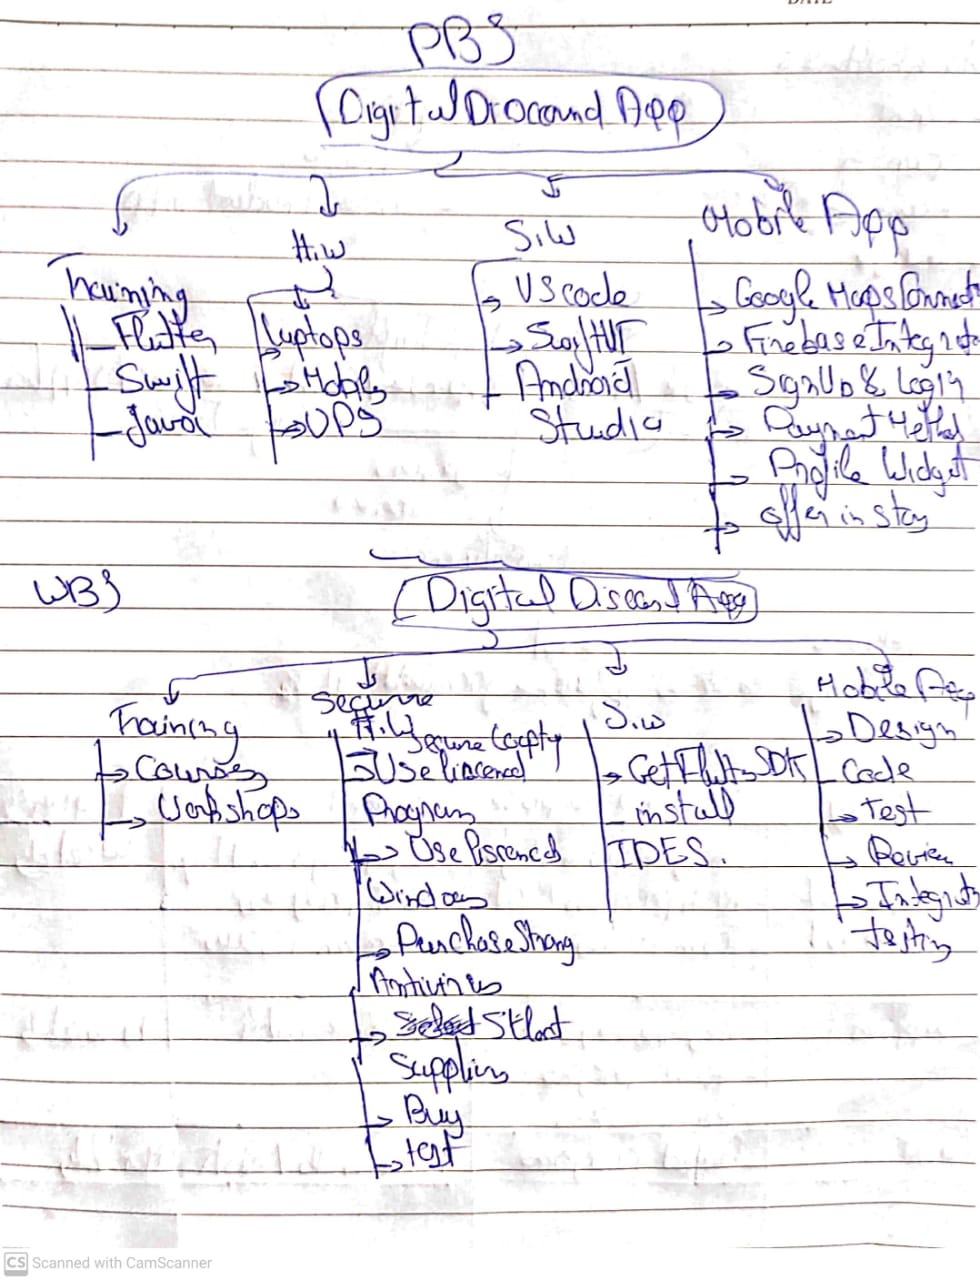 PBS
Digital Discound App
Training
Flutter
Swift
Java
H.W
Laptops
Mobiles
UPS
S.W
VS code
Android
Studio
Mobile App
Google Maps Connect
Firebase Integrat
SignUp & Login
Payment Method
Profile Widget
offer in
WBS
Digital Discand App
Training
Courses
Workshops
Secure
H.W
Secure
Use liscened
Program
Use liscenced
Windows
Purchase Strong
Antivirus
Select
Suppliers
Buy
test
S.W
Get Flutter SDK
install
IDES.
Mobile App
Design
Code
test
Review
Integrate
testing
CS Scanned with CamScanner